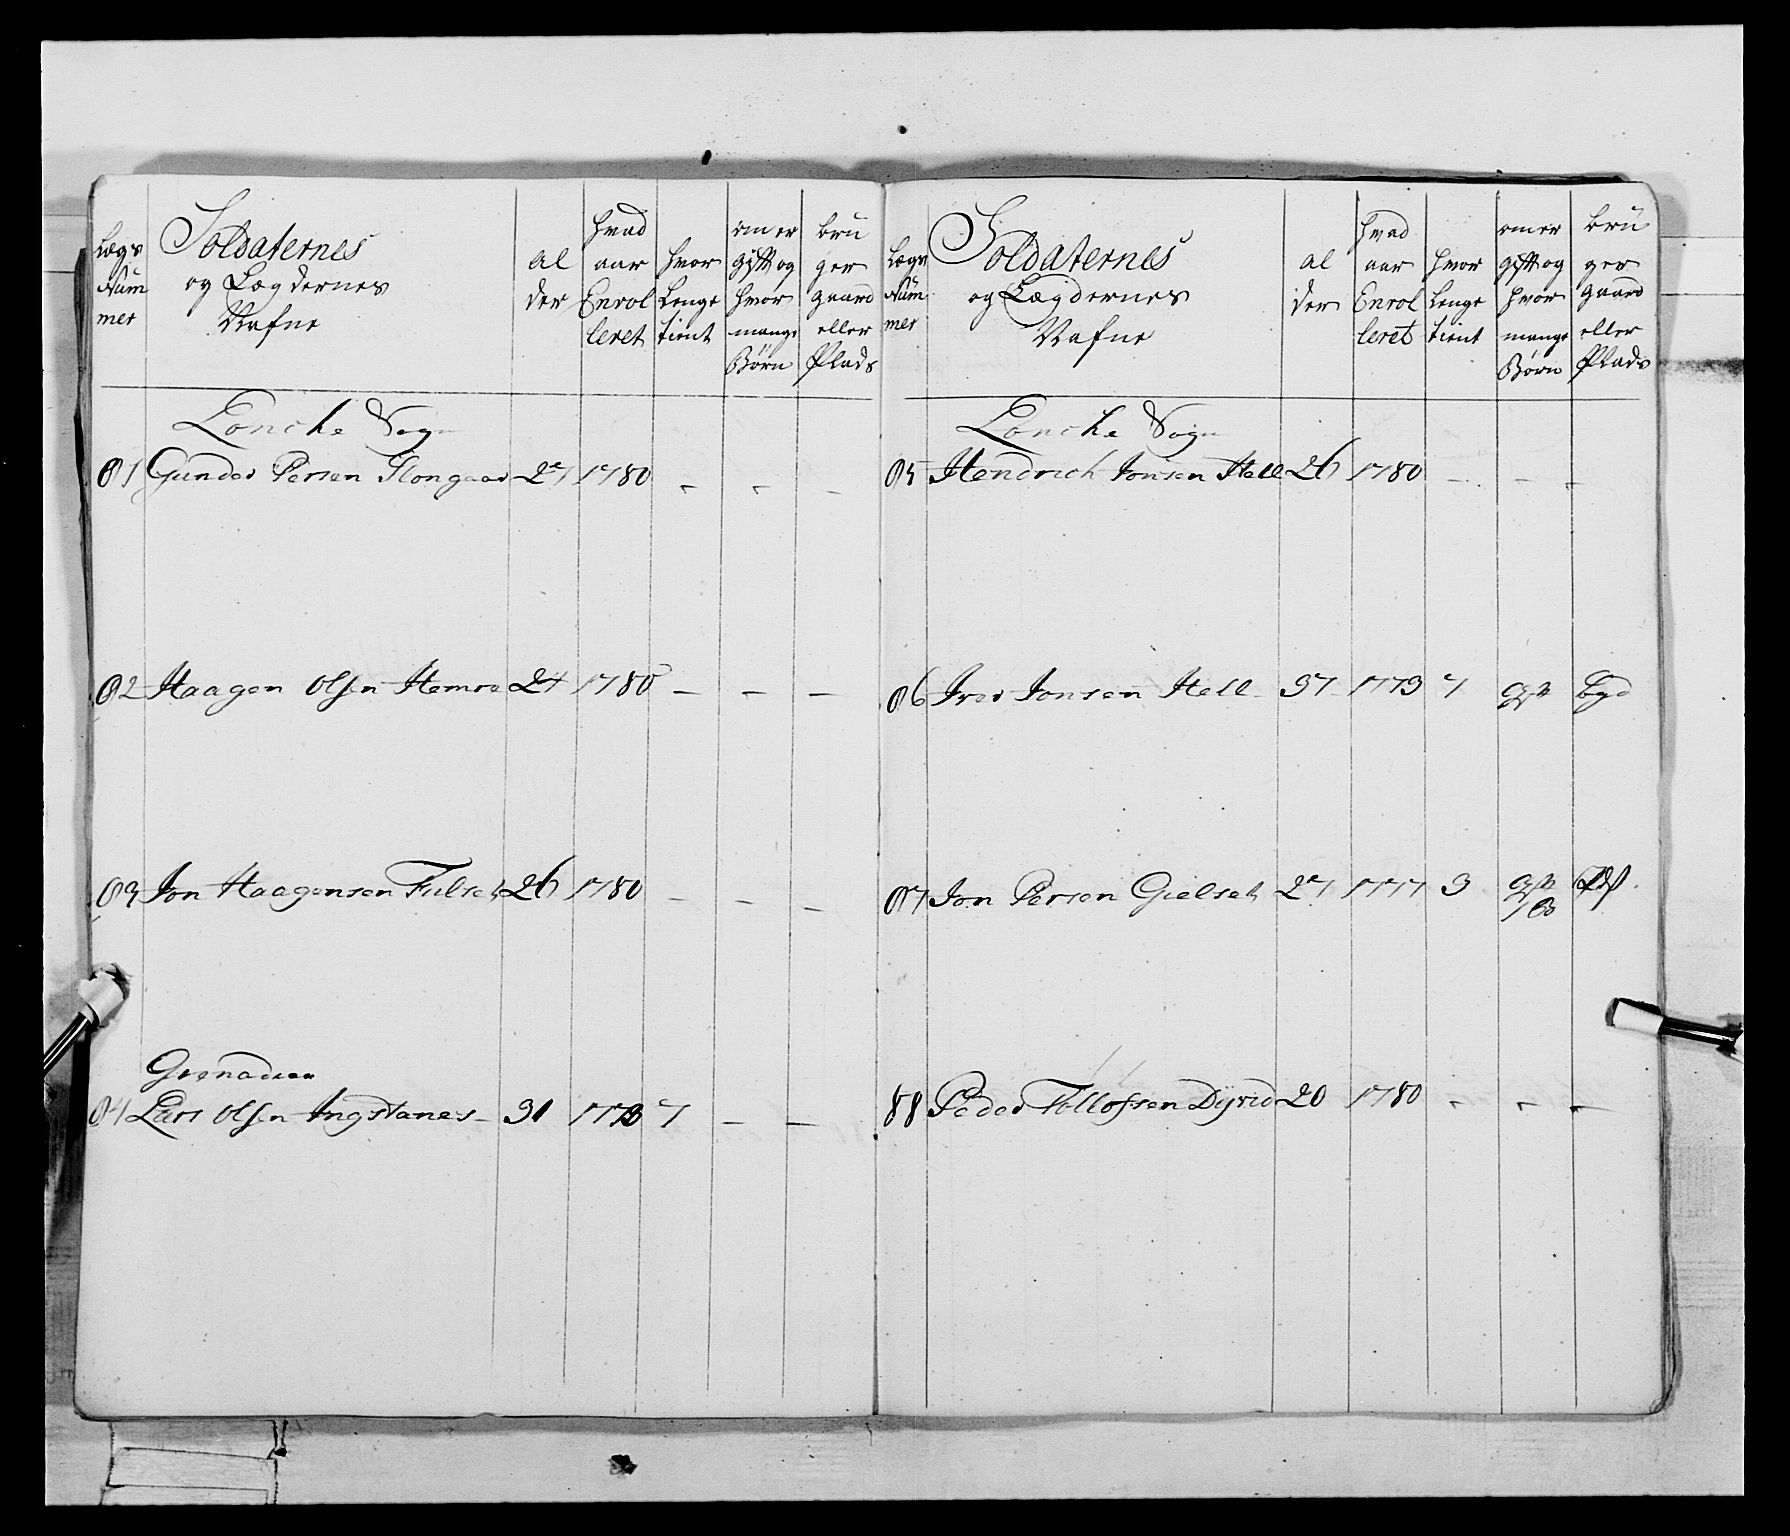 Lægs
Num
mer
Soldaternes
og Lægdernes
Nafne
Al
der
hvad
aar
Enrol
leret
hvor
lenge
tient
om er
gift og
hvor
mange
Børn
bru
ger
gaard
eller
Plads
Loncke Sogn
81 Gunder Persen Slongaar 27 1780 - - -
82 Haagen Olsen Hemre 24 1780 - - -
83 Jon Haagensen Fulset 26 1780 - - -
Grenadeer
84 Lars Olsen Ingstanes - 31 1773 7 - -
Lægs
Num
mer
Soldaternes
og Lægdernes
Nafne
Al
der
hvad
aar
Enrol
leret
hvor
lenge
tient
om er
gift og
hvor
mange
Børn
bru
ger
gaard
eller
Plads
Loncke Sogn
85 Hendrich Jonsen Hell 26 1780 - - -
86 Iver Jonsen Hell 37 1773 7 gift
87 Jon Persen Gielset 27 1777 3 gift
1 B
88 Peder Tollofsen Dyrid 20 1780 - - -